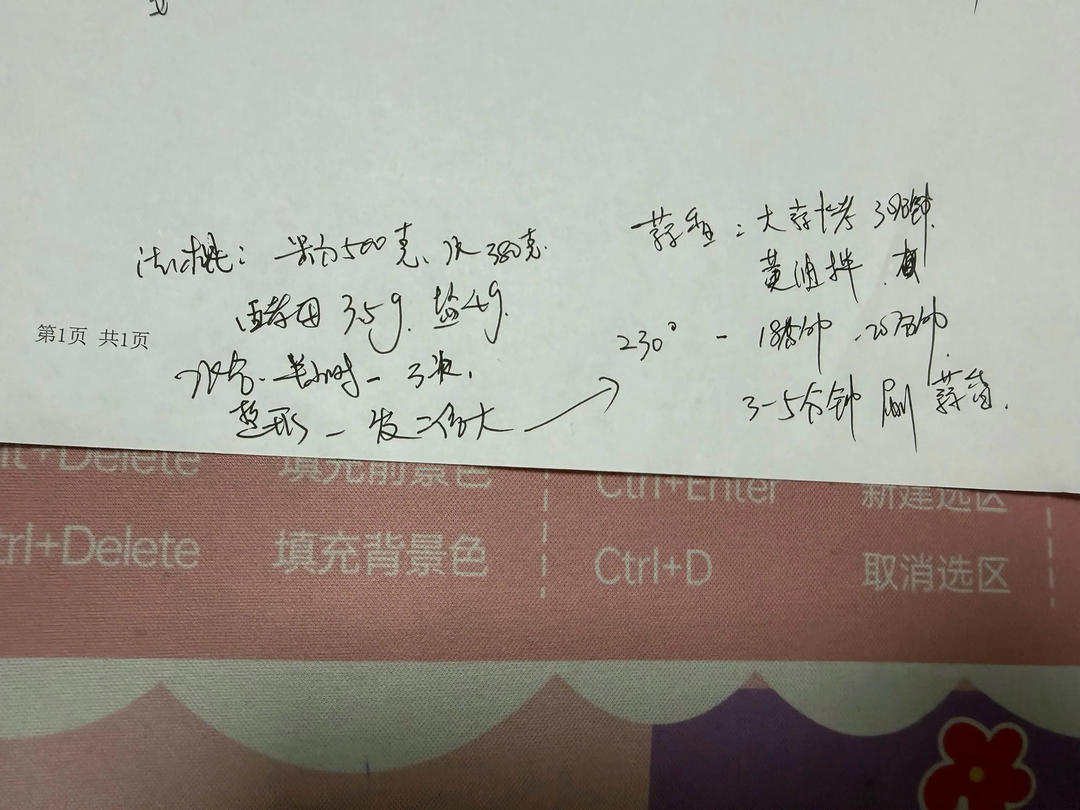 法棍：高粉500克、水380克.
酵母3.5g. 盐4g.
第1页 共1页
冰室. 半小时 - 3次.
整形 - 发二倍大
蒜香：大蒜烤30分钟.
黄油拌.
230° - 18分钟 . 25分钟.
3-5分钟 刷 蒜酱.
Delete 填充前景色 Ctrl+Enter 新建选区
trl+Delete 填充背景色 Ctrl+D 取消选区